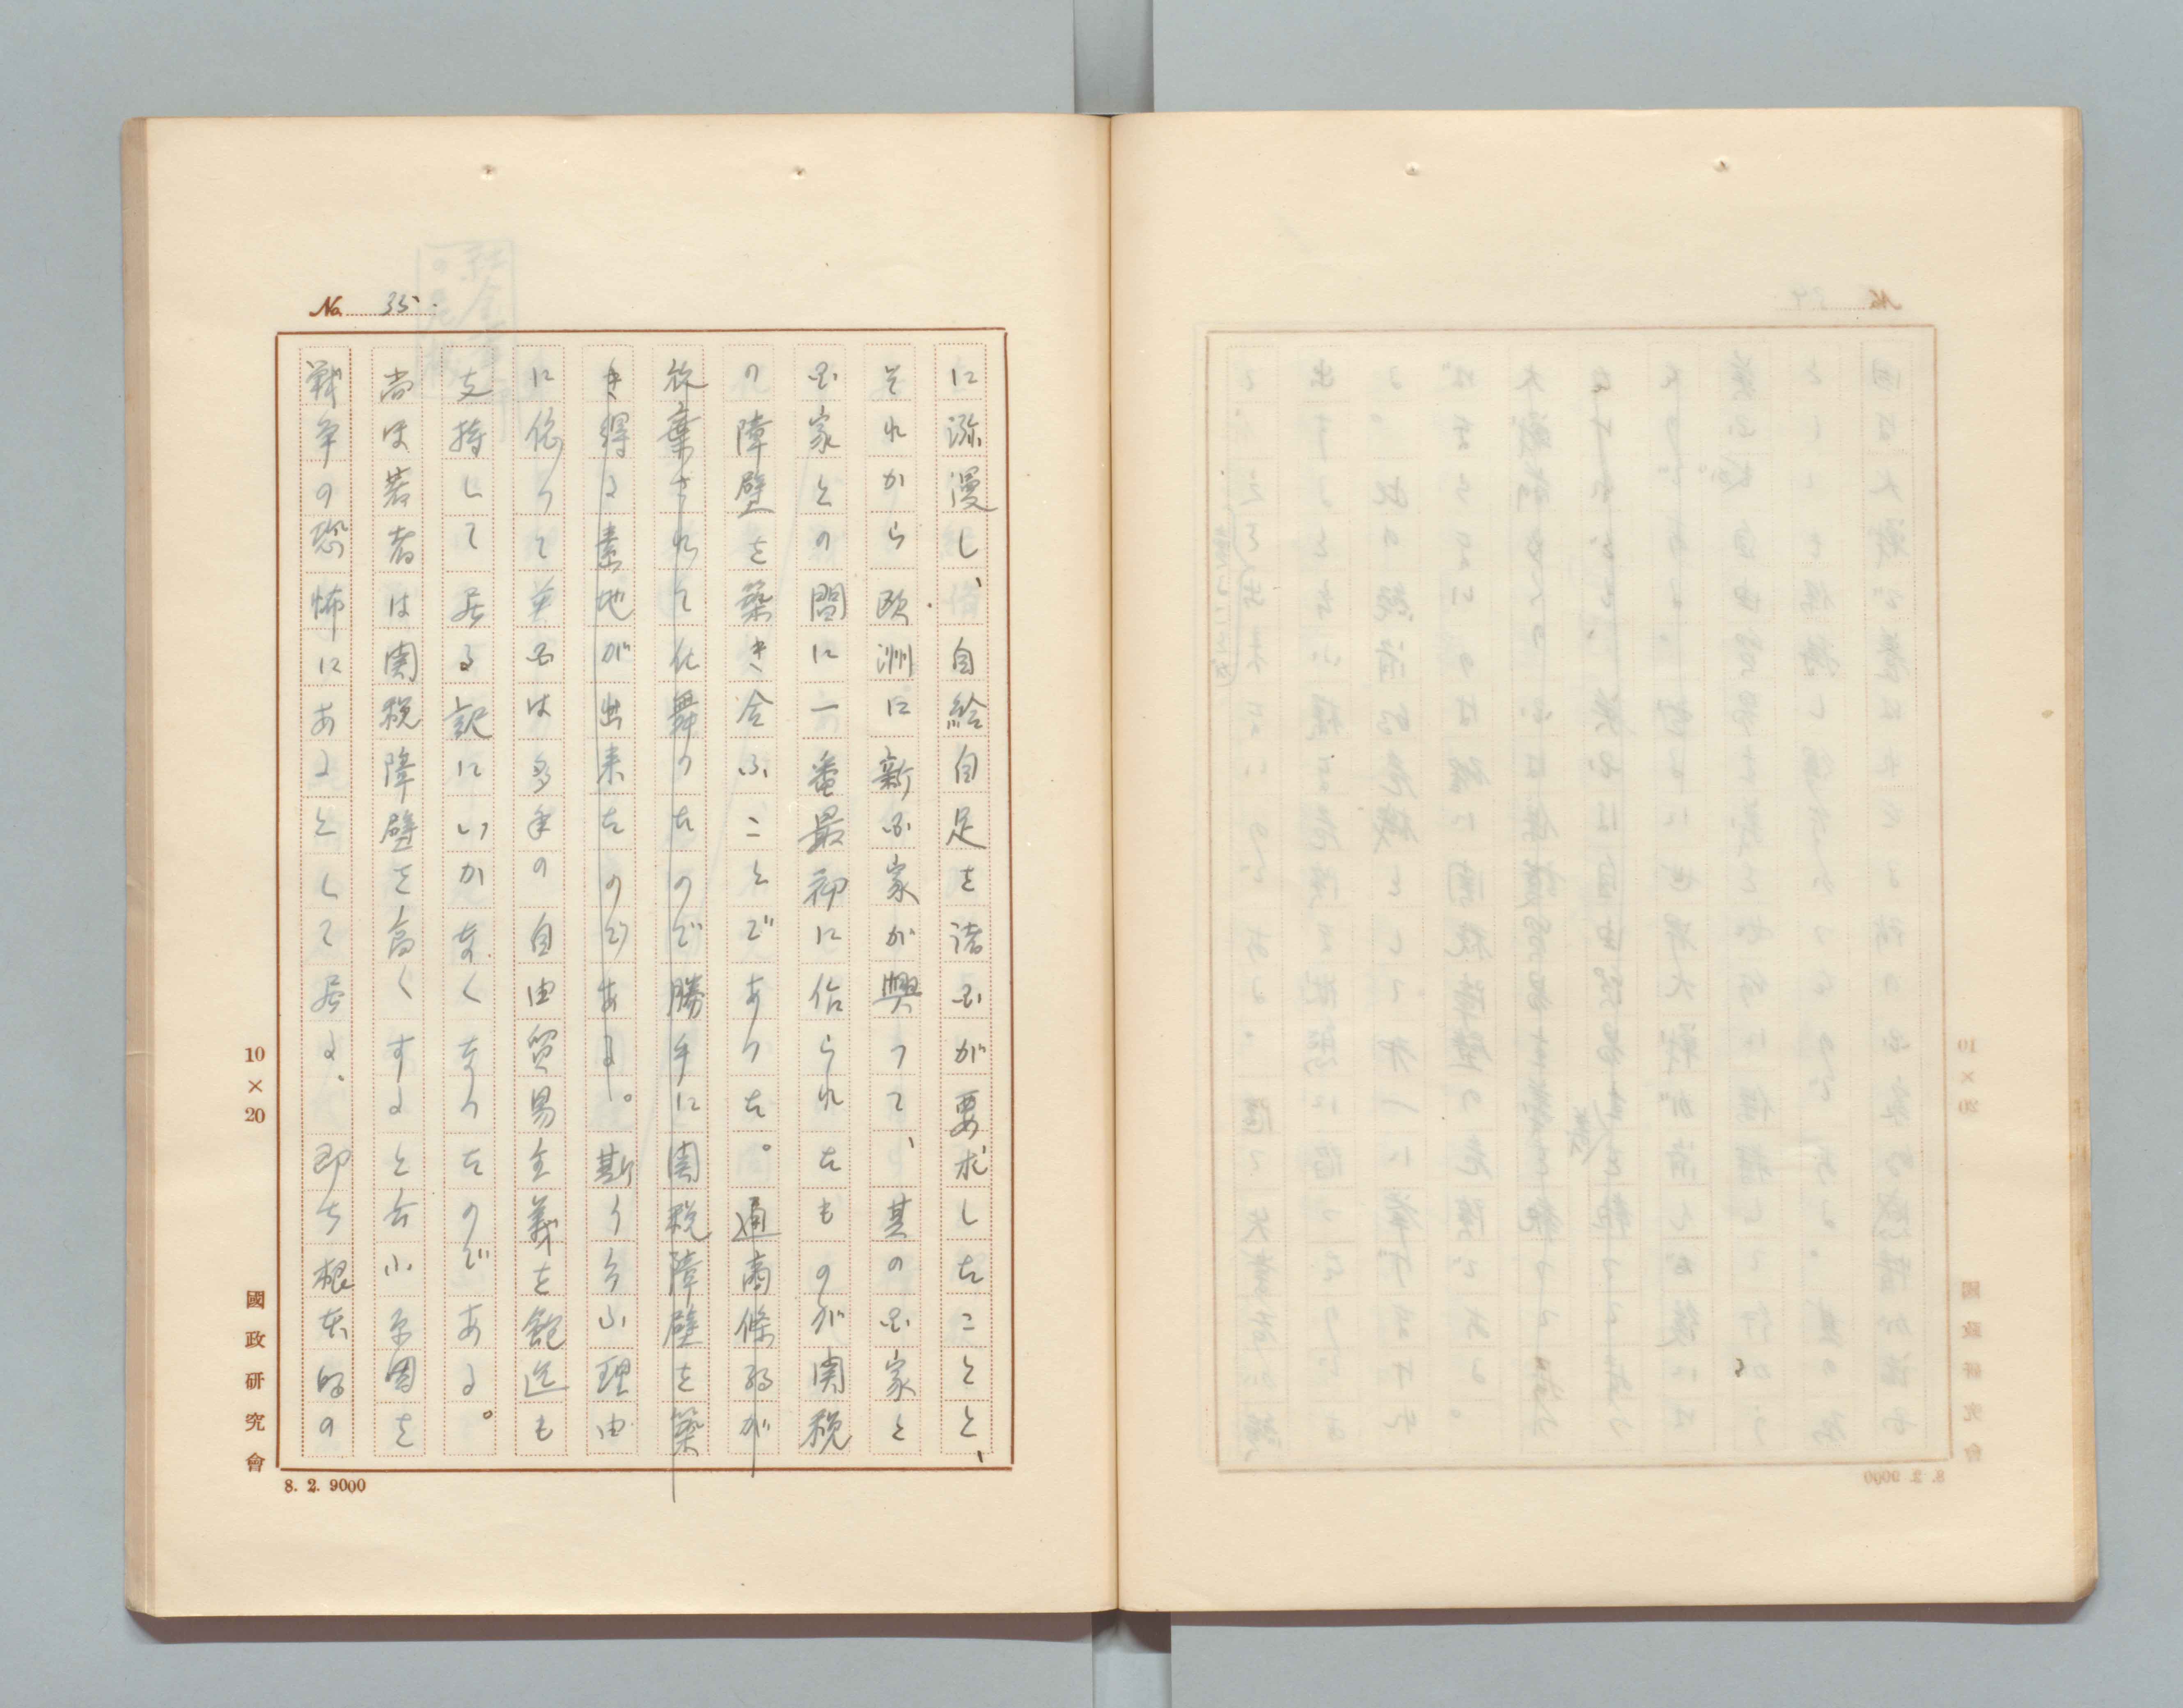 No. 35.
に瀰漫し、自給自足を諸国が要求したことと、
それから欧洲に新国家が興つて、其の国家と
国家との間に一番最初に作られたものが関税
の障壁を築き合ふことであつた。通商條約が
放棄されて仕舞つたので勝手に関税障壁を築
き得る素地が出来たのである。斯う云ふ理由
に依つて英国は多年の自由貿易主義を飽迄も
支持して居る訳にいかなくなつたのである。
尚ほ著者は関税障壁を高くすると云ふ原因を
戦争の恐怖にあるとして居る。即ち根本的の
10×20
國政研究會
8. 2. 9000